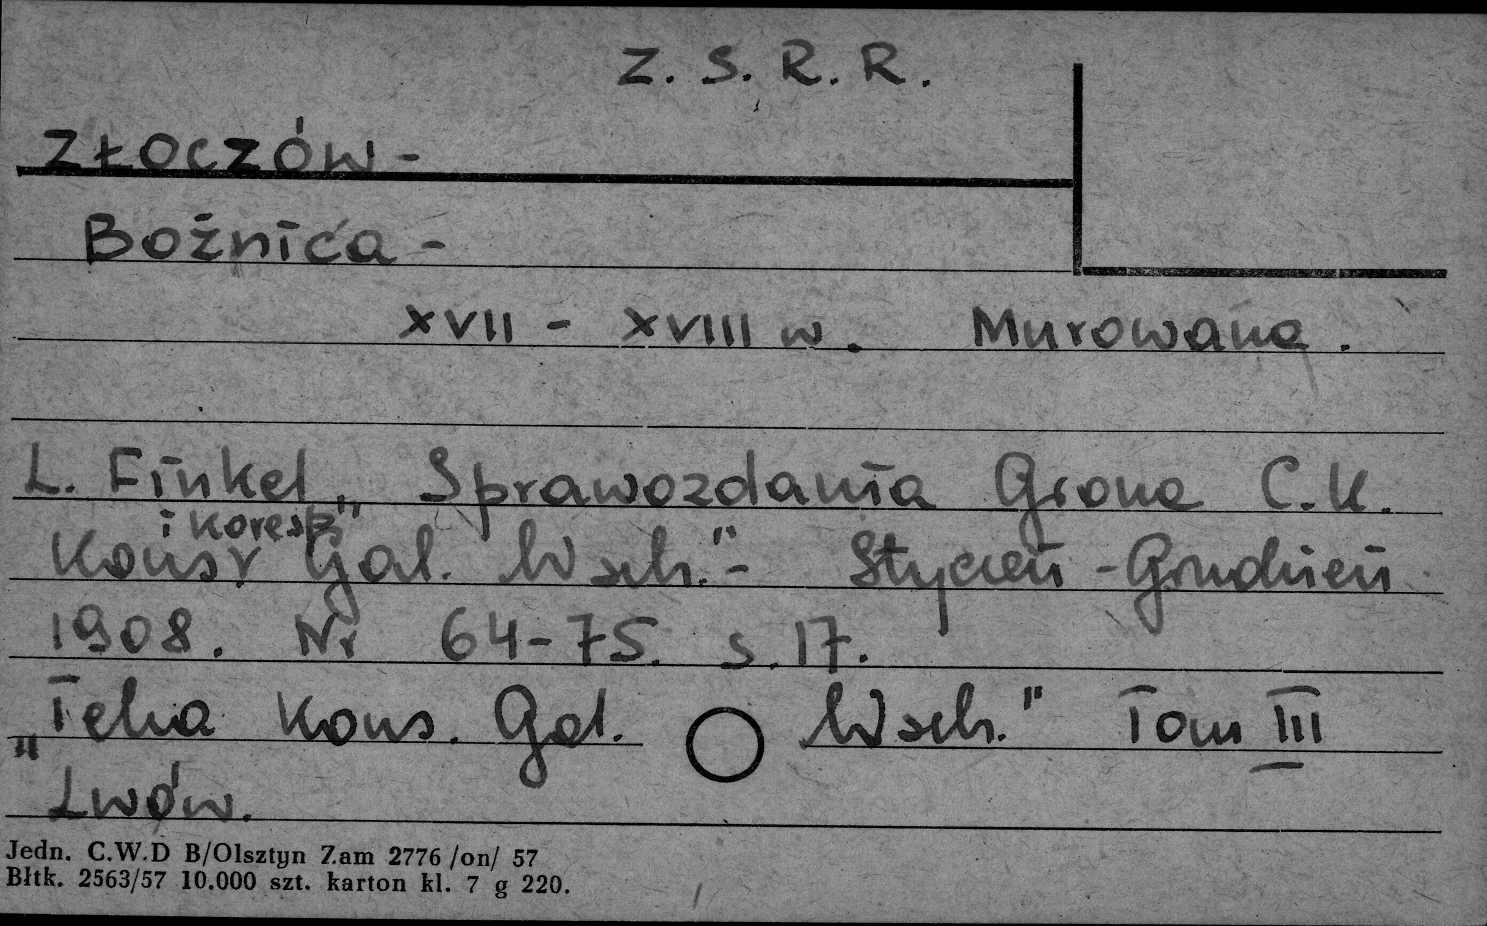 Z. S. R. R.
ZŁOCZÓW -
Bożnica -
XVII - XVIII w. Murowana.
L. Finkel „Sprawozdania Grona C.K.
i koresp.
Konsr Gal. Wsch." - Styczeń - Grudzień
1908. Nr 64-75. s. 17.
„Teka Kons. Gal. Wsch." Tom III
Lwów.
Jedn. C.W.D B/Olsztyn Zam 2776 /on/ 57
Błtk. 2563/57 10.000 szt. karton kl. 7 g 220.